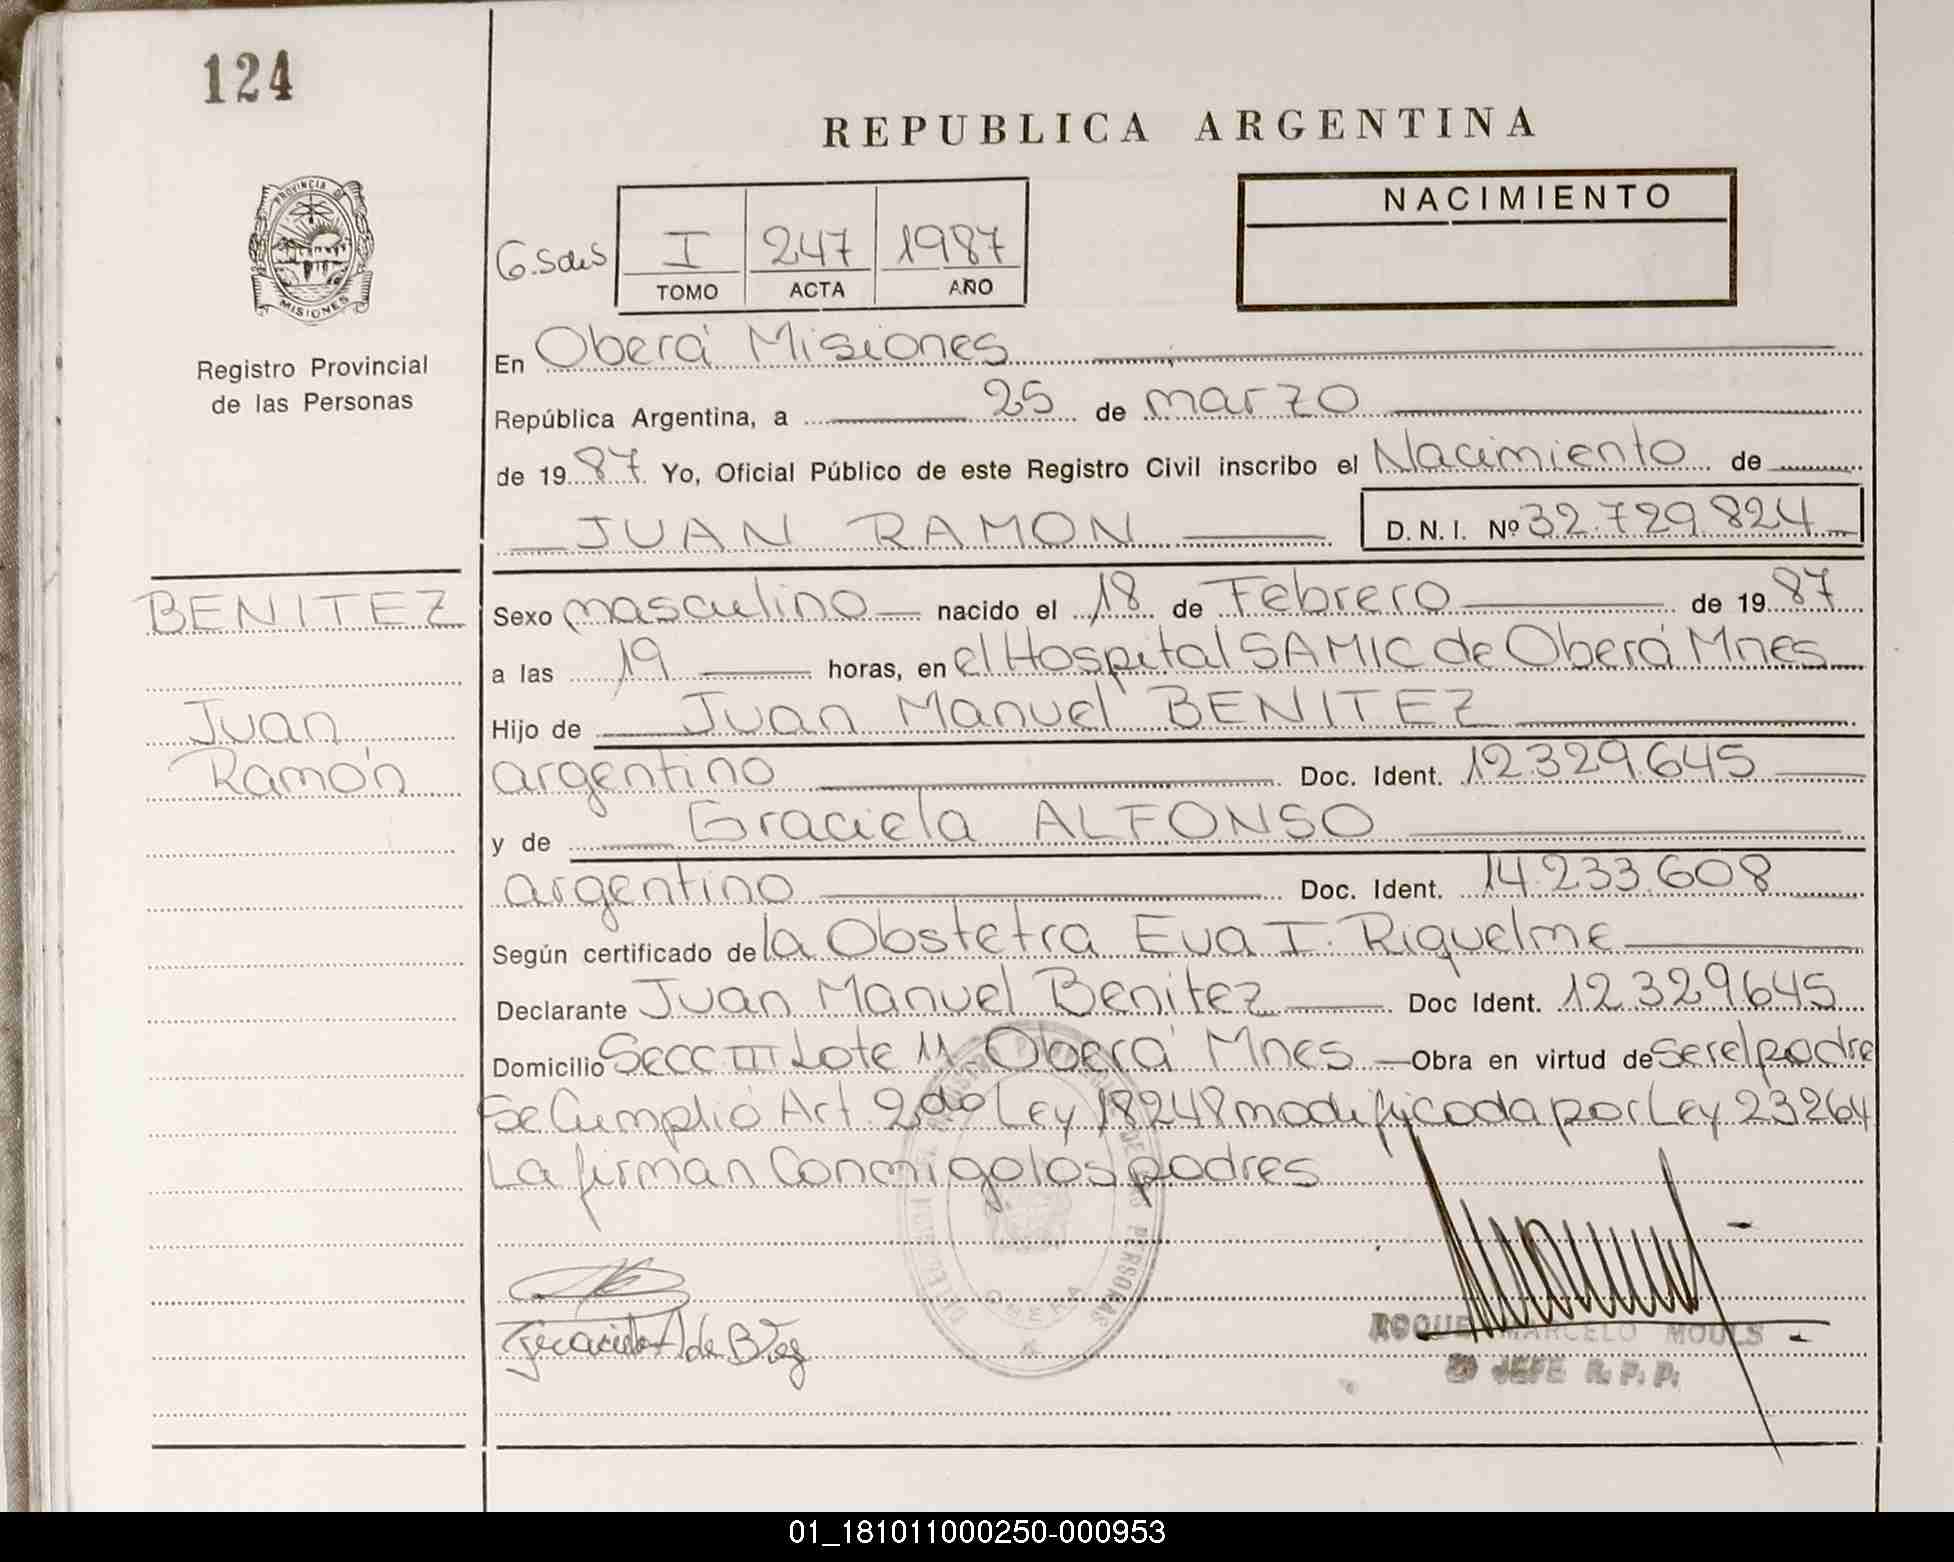 124
REPUBLICA ARGENTINA
PROVINCIA DE
MISIONES
NACIMIENTO
I 247 1987
TOMO ACTA AÑO
Registro Provincial
de las Personas
En Oberá Misiones
República Argentina, a 25 de marzo
de 1987 Yo, Oficial Público de este Registro Civil inscribo el Nacimiento de
JUAN RAMON D.N.I. Nº 32.729.824
BENITEZ
Juan
Ramón
Sexo masculino nacido el 18 de Febrero de 1987
a las 19 horas, en el Hospital SAMIC de Oberá Mnes
Hijo de Juan Manuel BENITEZ
argentino Doc. Ident. 12.329.645
y de Graciela ALFONSO
argentino Doc. Ident. 14.233.608
Según certificado de la Obstetra Eva I. Riquelme
Declarante Juan Manuel Benitez Doc Ident. 12.329.645
Domicilio Secc III Lote 11 Oberá Mnes Obra en virtud de ser el padre
Se Cumplió Art. 2do Ley 18248 modificada por Ley 23264
La firman Conmigo los padres
DE LAS PERSONAS
OBERA
ROQUE MARCELO MOULS
JEFE R. P. P.
01_181011000250-000953